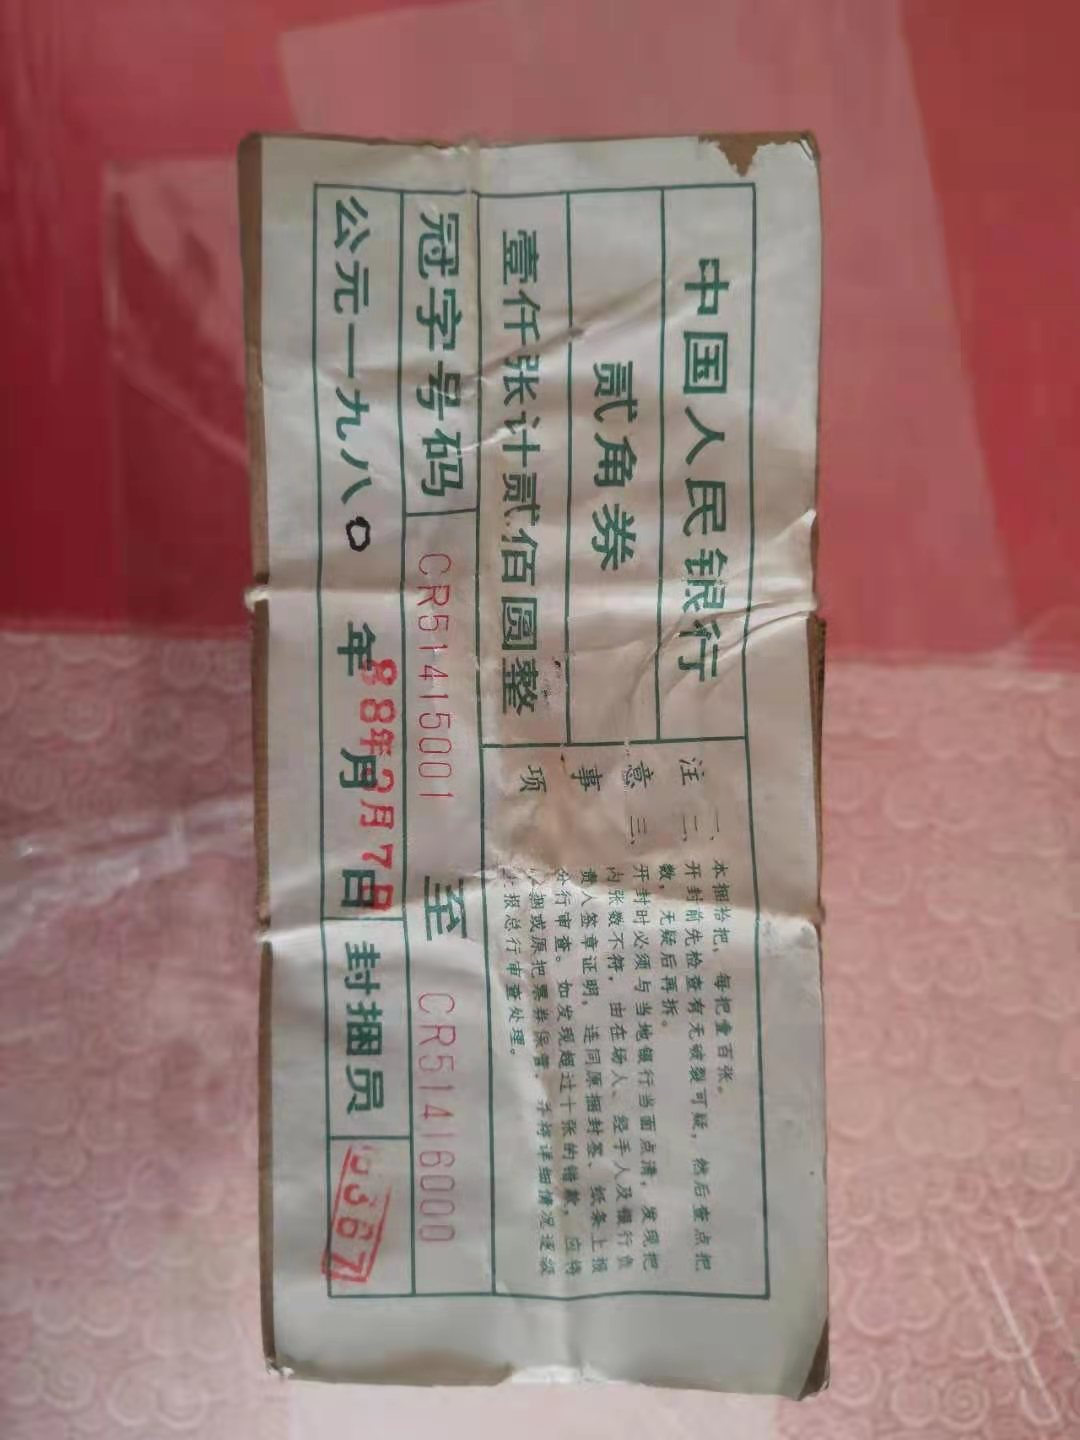 中国人民银行
贰角券
壹仟张计贰佰圆整
注意事项
一、本捆拾把,每把壹百张。
二、开封前先检查有无破裂可疑,然后查点把
数,无疑后再拆。
三、开封时必须与当地银行当面点清,发现把
内张数不符,由在场人、经手人及银行负
责人签章证明,连同原捆封签、纸条上报
分行审查。如发现超过十张的错款,应将
捆或原把票券保管,并将详细情况逐级
报总行审查处理。
冠字号码 CR51415001 至 CR51416000
公元一九八0年 月 日 封捆员
88年2月7日